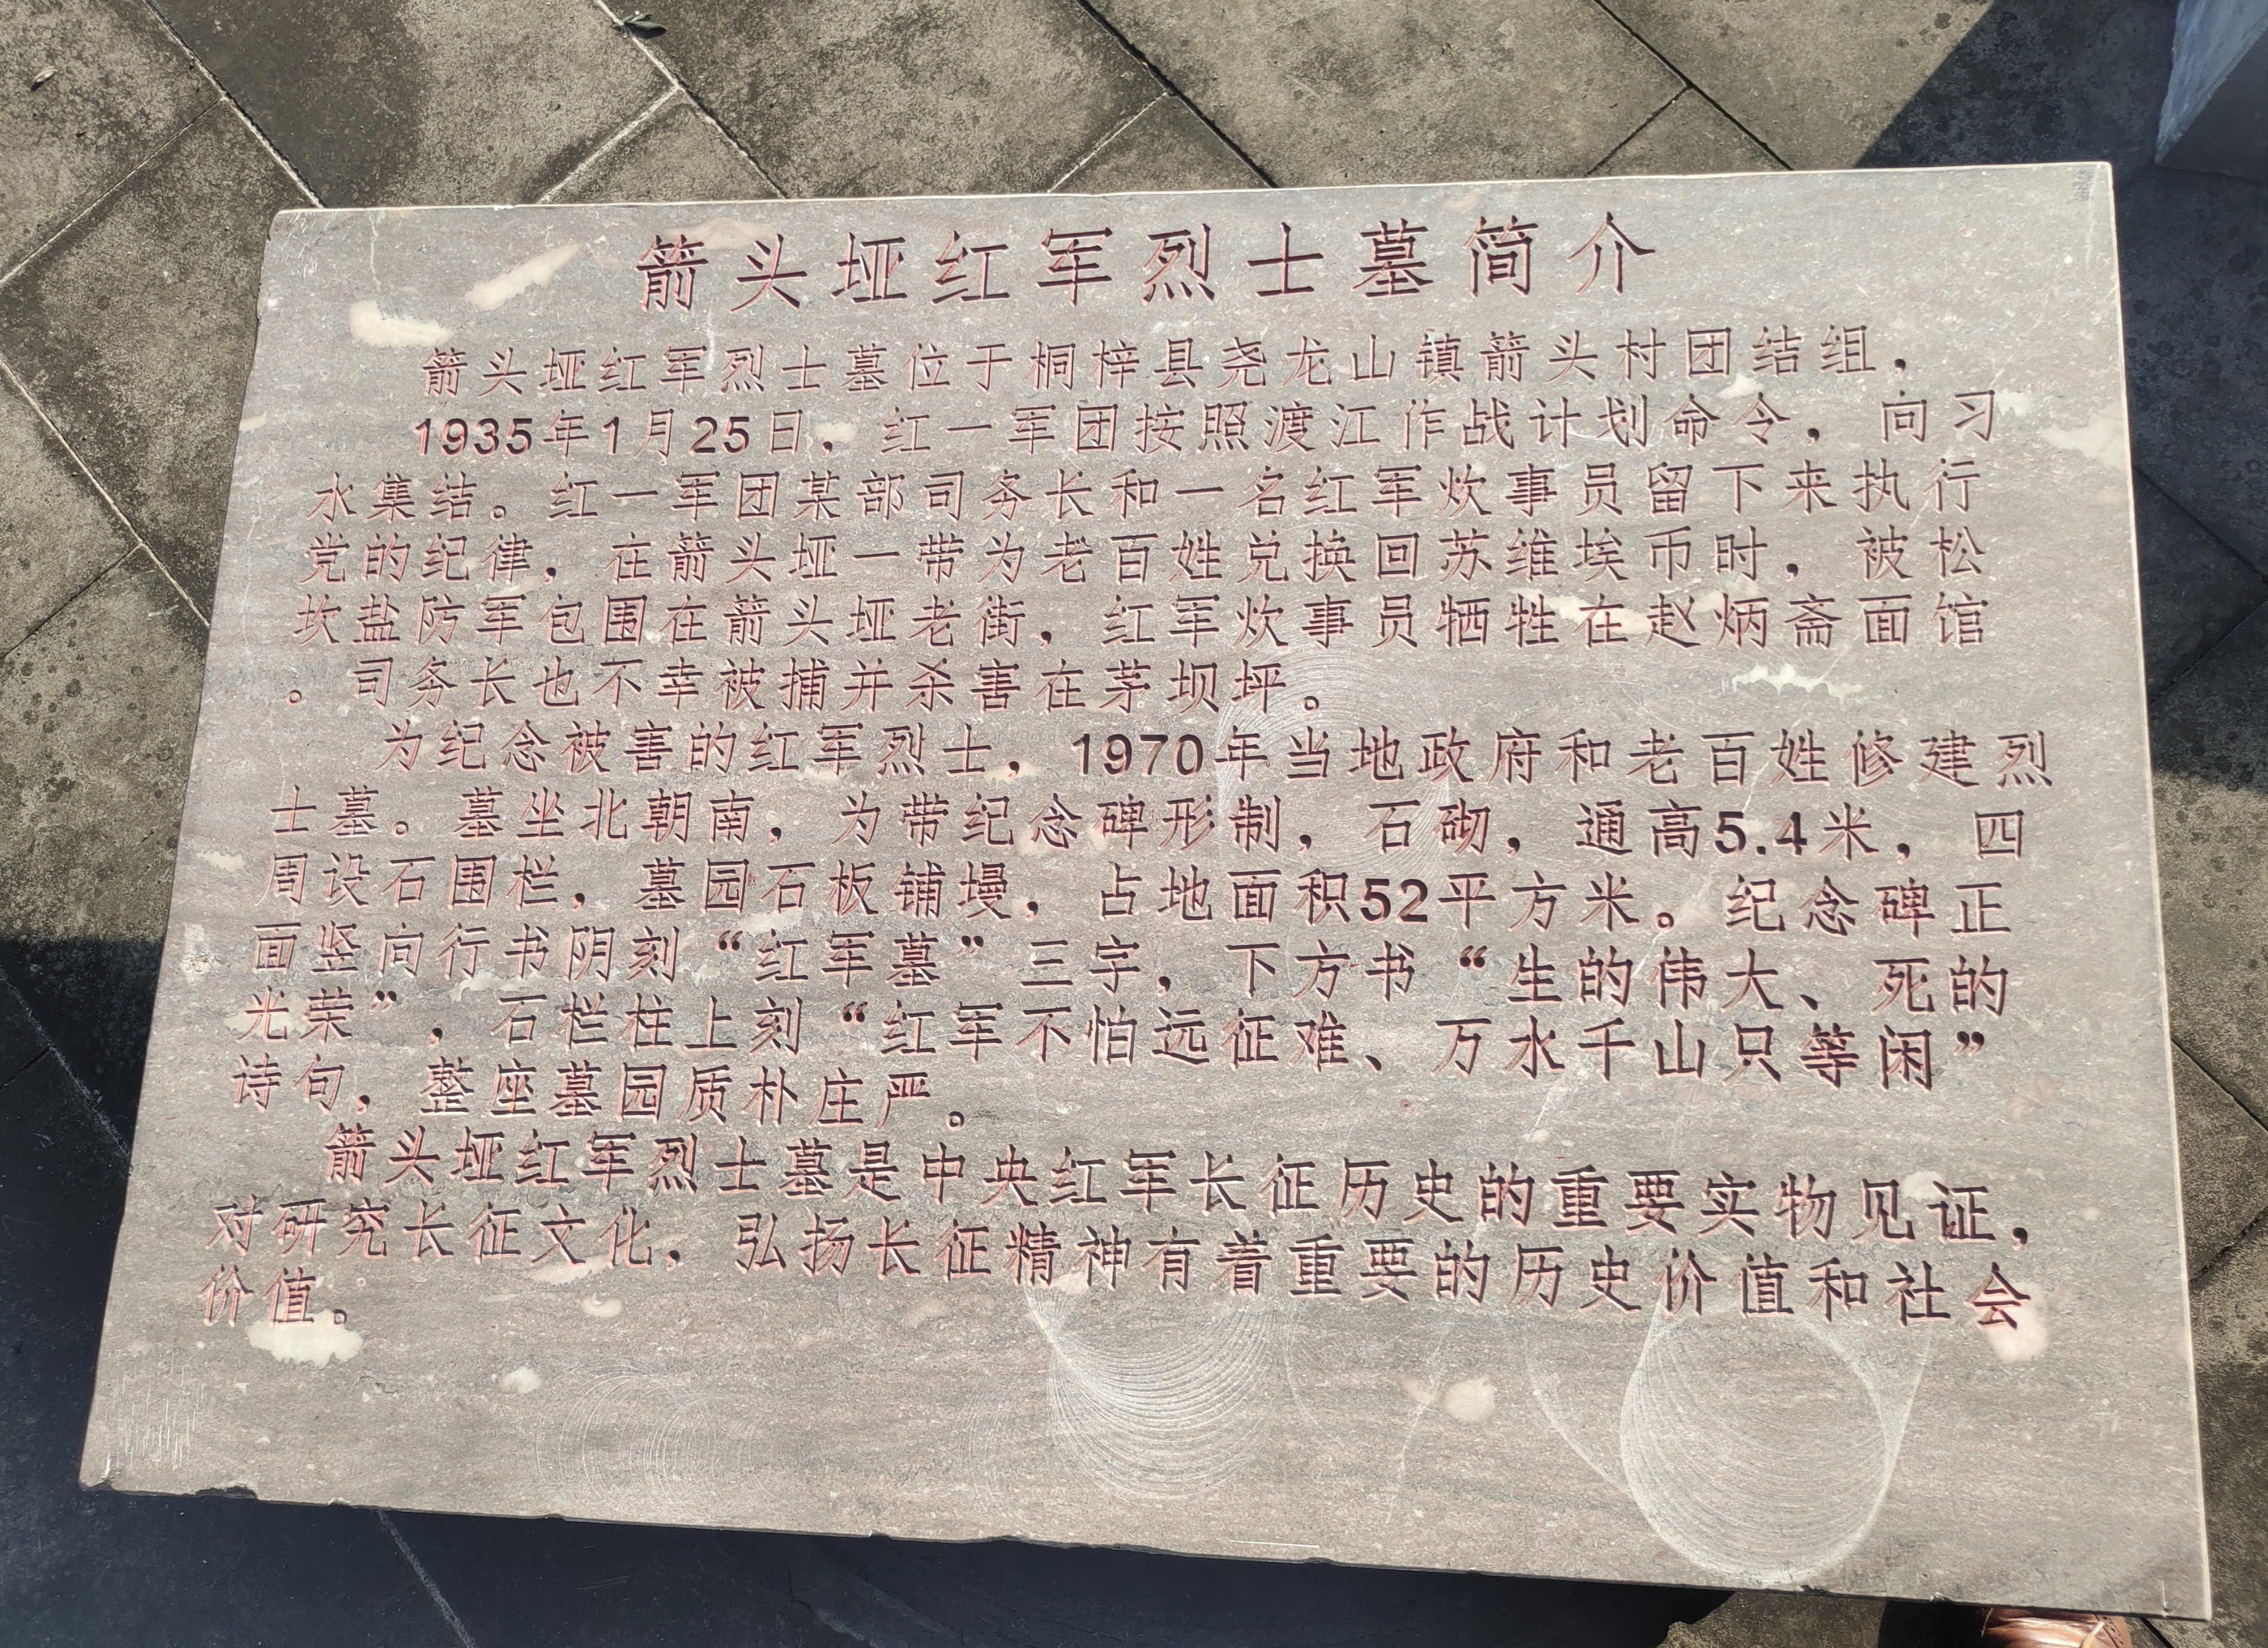 箭头垭红军烈士墓简介
箭头垭红军烈士墓位于桐梓县尧龙山镇箭头村团结组，
1935年1月25日，红一军团按照渡江作战计划命令，向习
水集结。红一军团某部司务长和一名红军炊事员留下来执行
党的纪律，在箭头垭一带为老百姓兑换回苏维埃币时，被松
坎盐防军包围在箭头垭老街，红军炊事员牺牲在赵炳斋面馆
。司务长也不幸被捕并杀害在茅坝坪。
为纪念被害的红军烈士，1970年当地政府和老百姓修建烈
士墓。墓坐北朝南，为带纪念碑形制，石砌，通高5.4米，四
周设石围栏，墓园石板铺墁，占地面积52平方米。纪念碑正
面竖向行书阴刻“红军墓”三字，下方书“生的伟大、死的
光荣”，石栏柱上刻“红军不怕远征难、万水千山只等闲”
诗句，整座墓园质朴庄严。
箭头垭红军烈士墓是中央红军长征历史的重要实物见证，
对研究长征文化，弘扬长征精神有着重要的历史价值和社会
价值。